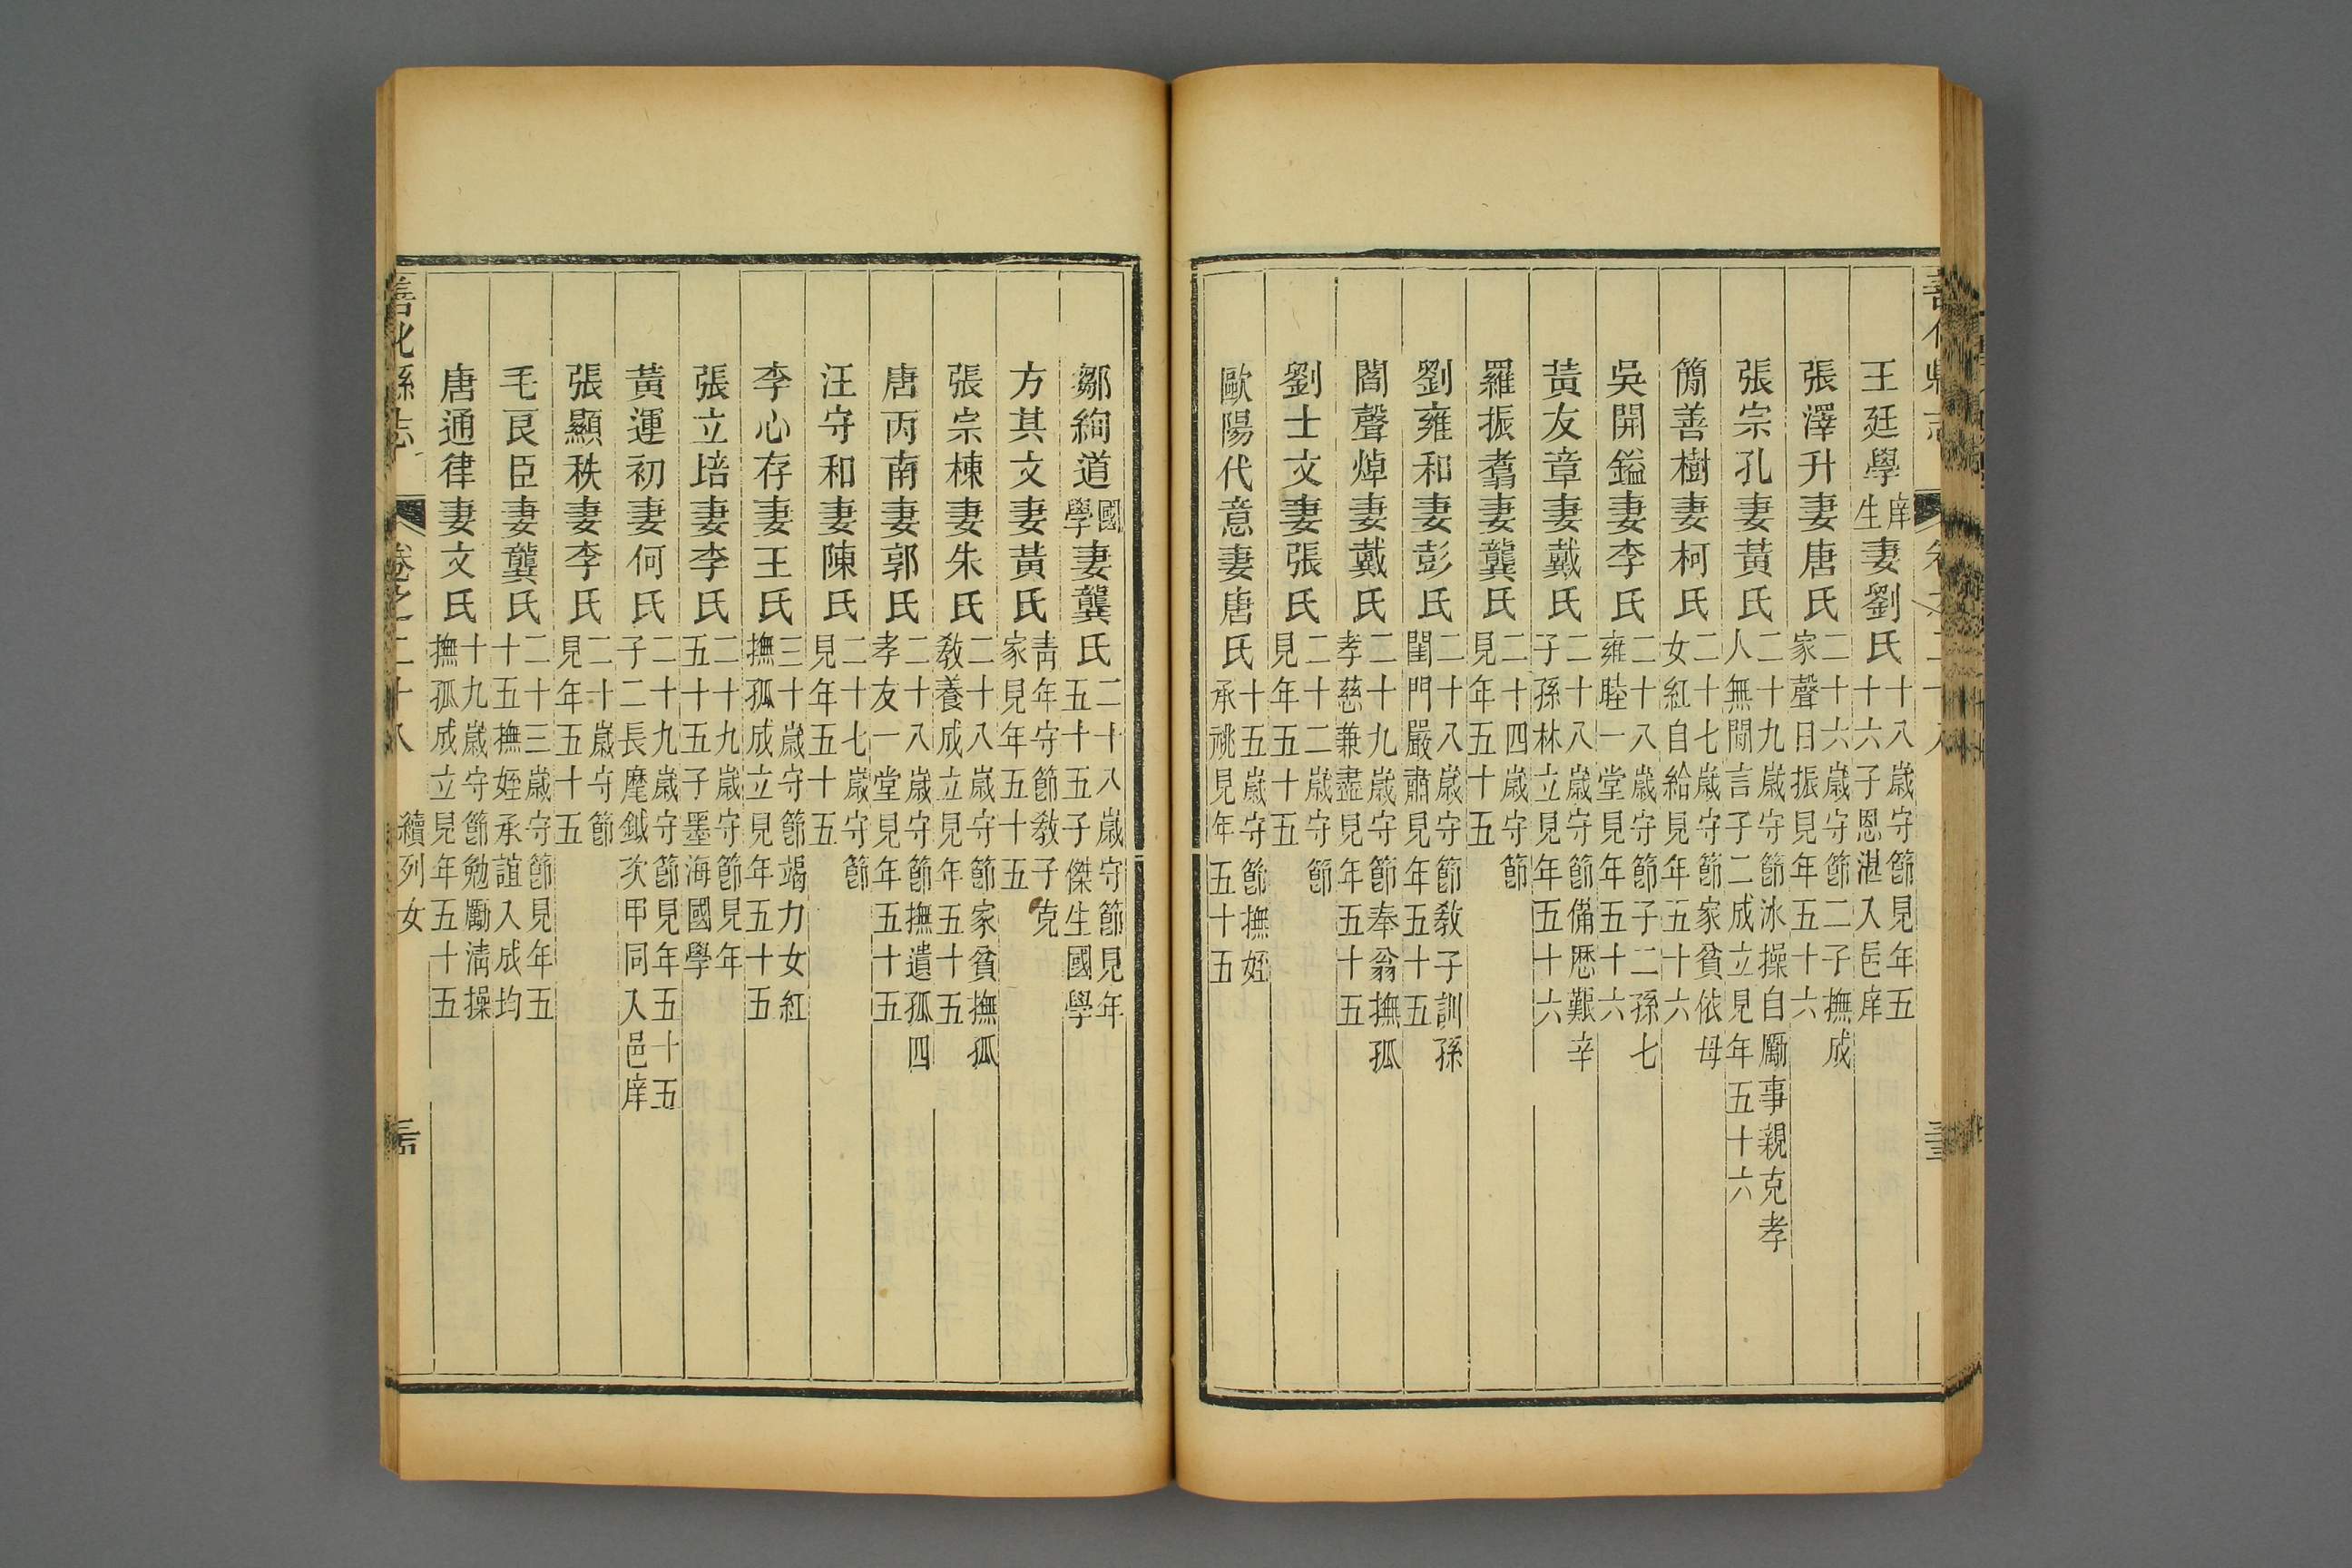 王廷學庠生妻劉氏十八歲守節見年五十六子恩湛入邑庠
張澤升妻唐氏二十六歲守節二子撫成家聲日振見年五十六
張宗孔妻黃氏二十九歲守節冰操自勵事親克孝人無閒言子二成立見年五十六
簡善樹妻柯氏二十七歲守節家貧依母女紅自給見年五十六
吳開鎰妻李氏二十八歲守節子二孫七雍睦一堂見年五十六
黃友章妻戴氏二十八歲守節備歷艱辛子孫林立見年五十六
羅振翥妻龔氏二十四歲守節見年五十五
劉雍和妻彭氏二十八歲守節教子訓孫閨門嚴肅見年五十五
閻聲焯妻戴氏二十九歲守節奉翁撫孤孝慈兼盡見年五十五
劉士文妻張氏二十二歲守節見年五十五
歐陽代意妻唐氏十五歲守節撫姪承祧見年五十五
鄒絢道國學妻龔氏二十八歲守節見年五十五子傑生國學
方其文妻黃氏靑年守節教子克家見年五十五
張宗棟妻朱氏二十八歲守節家貧撫孤教養成立見年五十五
唐丙南妻郭氏二十八歲守節撫遺孤四孝友一堂見年五十五
汪守和妻陳氏二十七歲守節見年五十五
李心存妻王氏三十歲守節竭力女紅撫孤成立見年五十五
張立培妻李氏二十九歲守節見年五十五子墨海國學
黃運初妻何氏二十九歲守節見年五十五子二長麾鉞次甲同入邑庠
張顯秩妻李氏二十歲守節見年五十五
毛良臣妻龔氏二十三歲守節見年五十五撫姪承誼入成均
唐通律妻文氏十九歲守節勉勵淸操撫孤成立見年五十五
善化縣志 卷之二十八 續列女